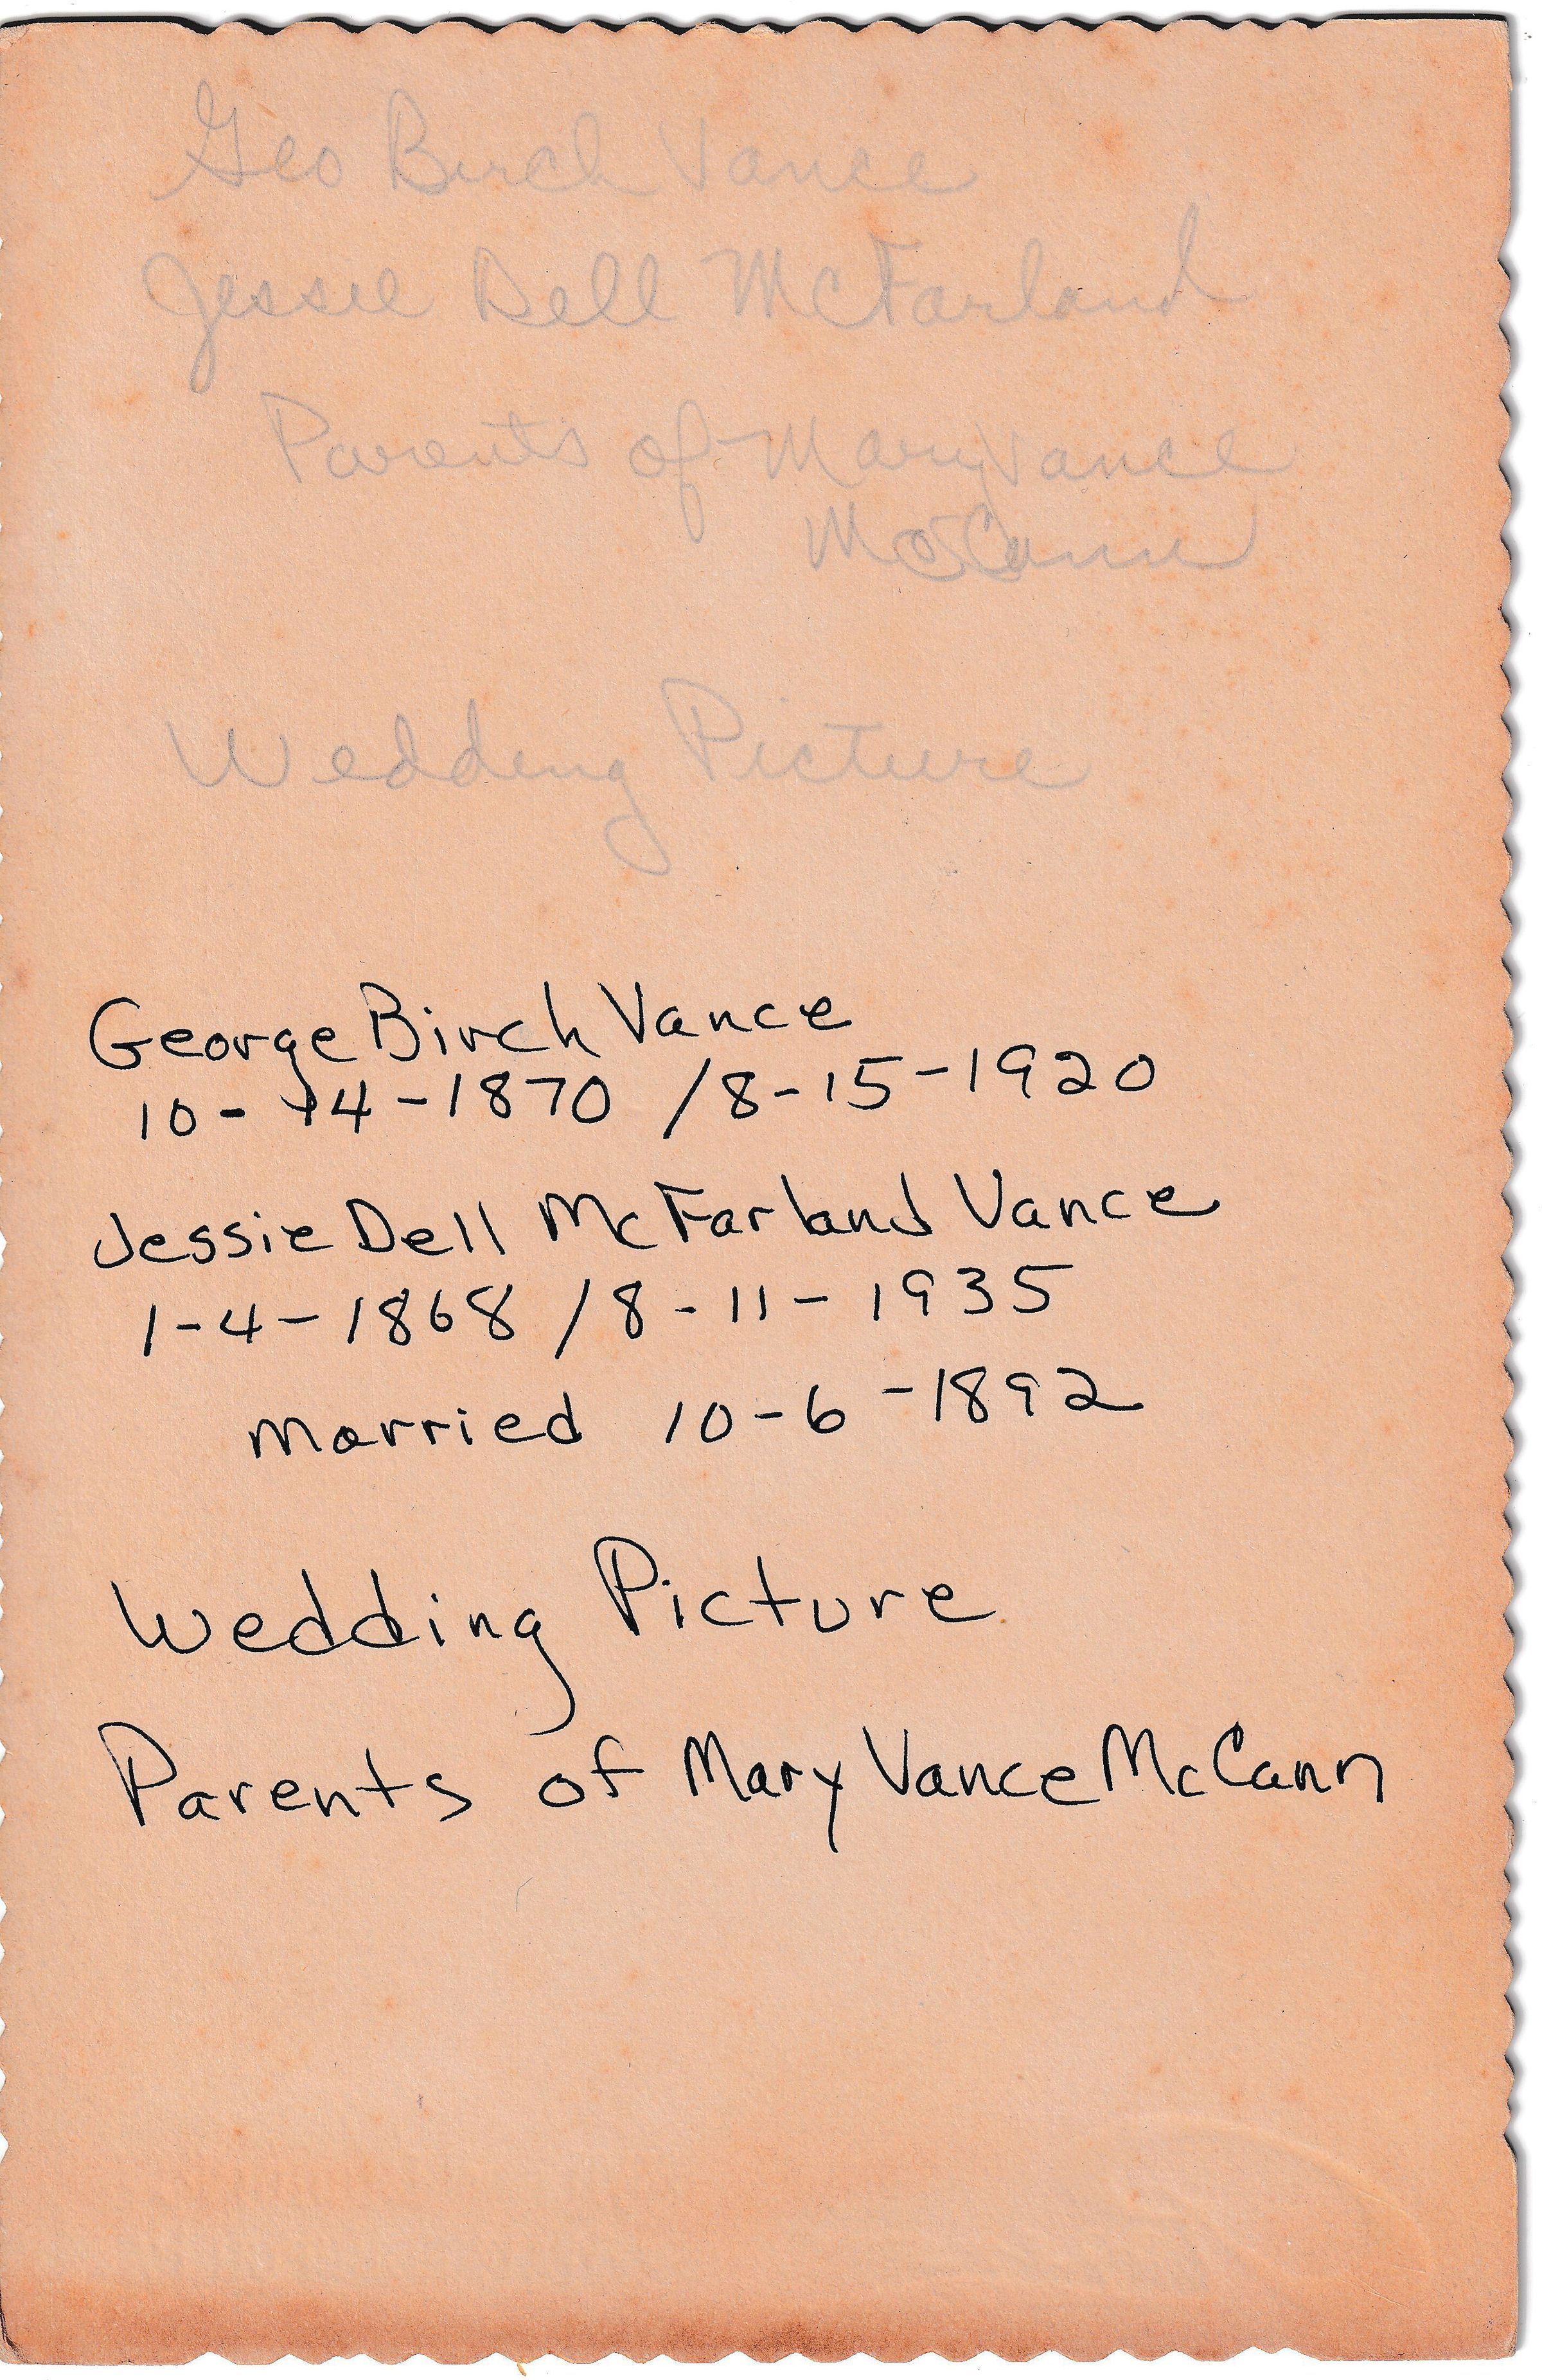 Geo Birch Vance
Jessie Dell McFarland
Parents of Mary Vance
McCann
Wedding Picture
George Birch Vance
10-14-1870 / 8-15-1920
Jessie Dell McFarland Vance
1-4-1868 / 8-11-1935
Married 10-6-1892
Wedding Picture
Parents of Mary Vance McCann